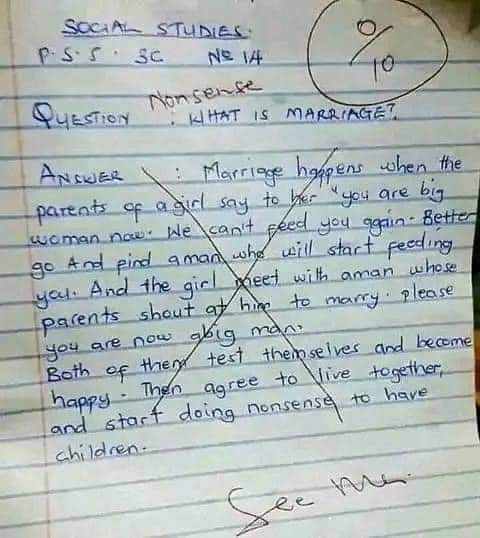 SOCIAL STUDIES.
P.S.S. 3C No 14
0/10
Nonsense
QUESTION : WHAT IS MARRIAGE?
ANSWER : Marriage happens when the
parents of a girl say to her "you are big
woman now. We can't feed you again. Better
go And find aman who will start feeding
you. And the girl meet with aman whose
parents shout at him to marry. please
you are now abig man.
Both of them test themselves and become
happy. Then agree to live together,
and start doing nonsense to have
children.
See Me.